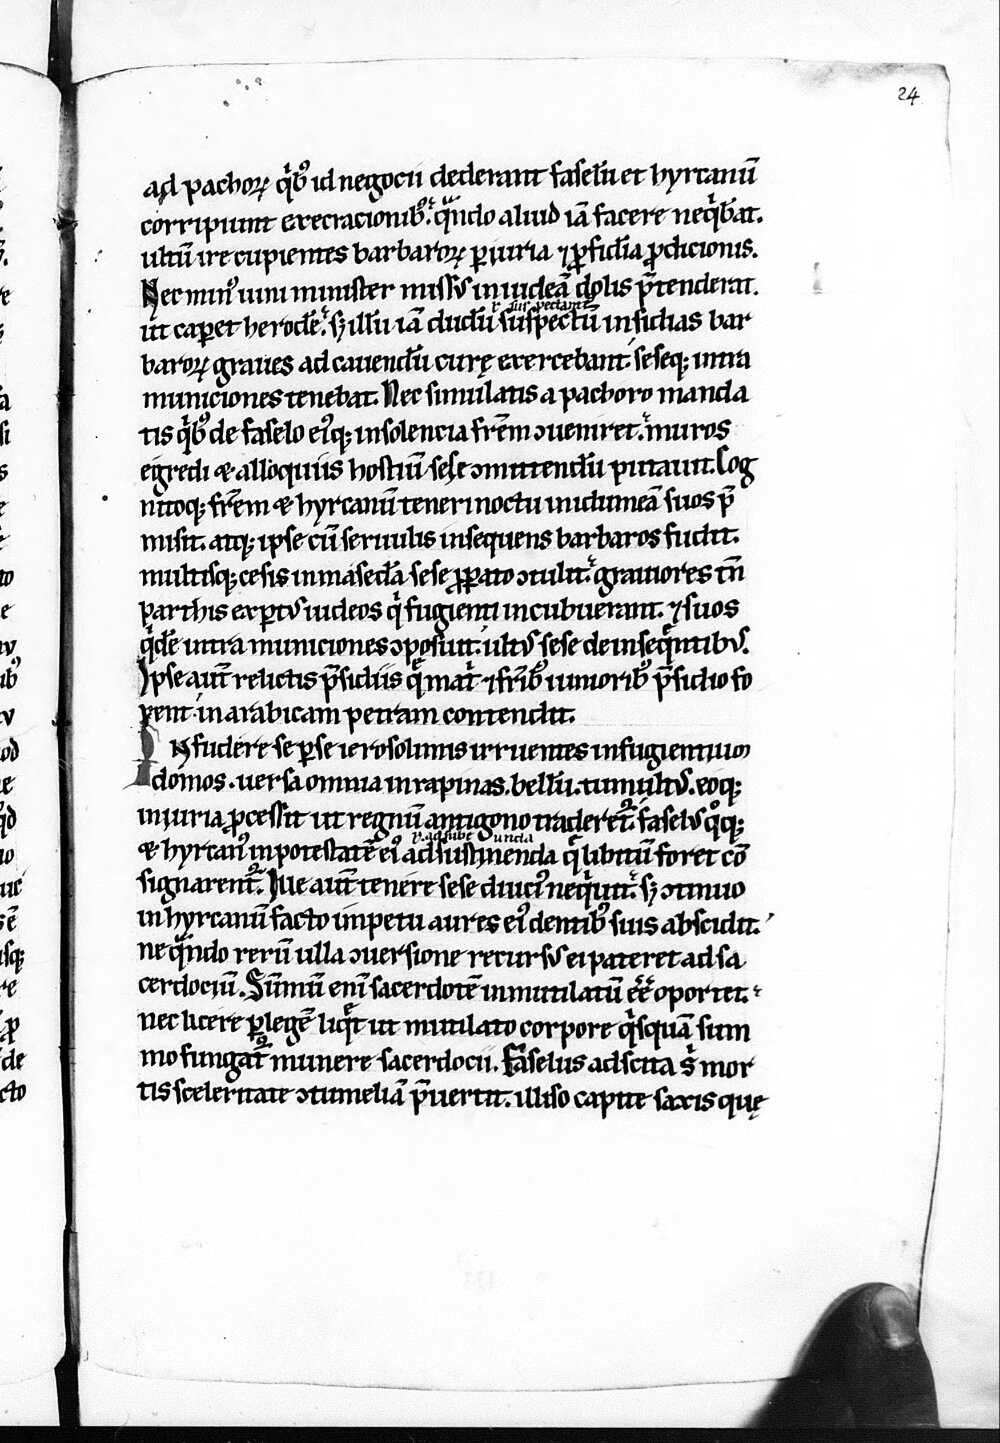 24
ad pachoꝝ qͥbꝰ id negocii dederant faselū et hyrcanū
corripiunt execracionibꝰ. qͣndo aliud iā facere neqͥbat.
ultū ire cupientes barbaroꝝ ꝑiuria ⁊ ꝑfidia ꝓdicionis.
Nec minꝰ uini minister missꝰ in iudeā dolis p̄tenderat.
r̓ suspectant
ut caperet herodē. sꝫ illū iā dudū suspectū insidias bar
baroꝝ graues ad cauendū curę exercebant. seseqꝫ intra
municiones tenebat. Nec simulatis a pachoro manda
tis qͥbꝰ de faselo eiꝰqꝫ insolencia fr̄em ꝯueniret. muros
egredi & alloquiis hostiū sese ꝯmittendū putauit. Cog
nitoqꝫ fr̄em & hyrcanū teneri noctu in idumeā suos p̄
misit. atqꝫ ipse cū seruulis insequens barbaros fudit.
multisqꝫ cesis in masedā sese ꝓꝑato ꝯtulit. grauiores tn̄
parthis exꝑtꝰ iudeos qͥ fugienti incubuerant. ⁊ suos
qͥdē intra municiones ꝯposuit. ultꝰ sese de inseqͣntibꝰ.
Ipse aut̄ relictis p̄sidiis qͥ mat̓ ⁊ fr̄ibꝰ iunioribꝰ p̄sidio fo
rent. in arabicam petram contendit.
INfudere se ꝑse ierosolimis irruentes in fugientium
domos. uersa omnia in rapinas. bellū. tumultꝰ. eoqꝫ
iniuria ꝓcessit ut regnū antigono traderet᷑. faselꝰ qͦqꝫ
r̓. ad sube unda
& hyrcanꝰ in potestatē eiꝰ ad sustinenda qͥ libitū foret cō
signarent᷑. Ille aut̄ tenere sese diuciꝰ nequit. sꝫ ꝯtinuo
in hyrcanū facto impetu aures eiꝰ dentibꝰ suis abscidit.
ne qͣndo rerū ulla ꝯuersione recursꝰ ei pateret ad sa
cerdociū. Sūmū enī sacerdotē inmutilatū eē̄ oportet.
nec licere ꝑ legē liqͥt ut mutilato corpore qͥsquā sum
mo fungat᷑ munere sacerdocii. Faselus adscita s̓ mor
tis sceleritate ꝯtumeliā p̄uertit. illiso capite saxis quę